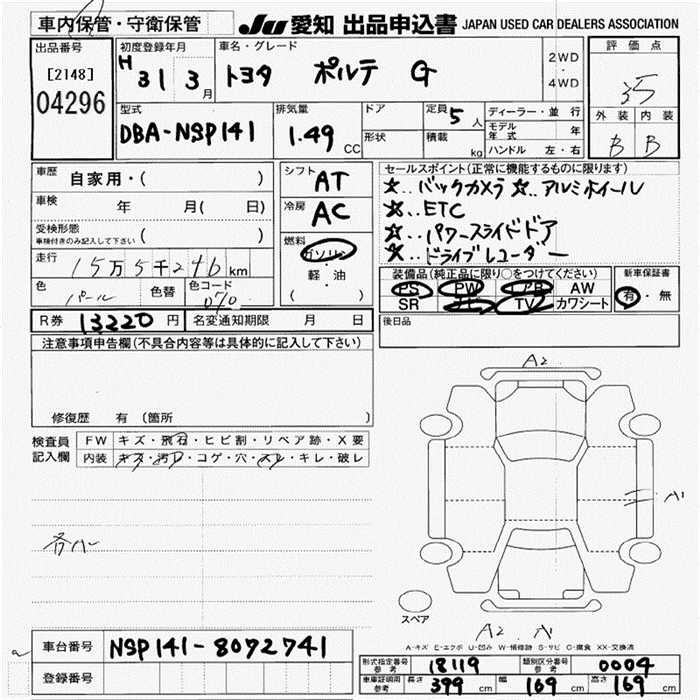 車内保管・守衛保管
JU 愛知 出品申込書 JAPAN USED CAR DEALERS ASSOCIATION
出品番号
[2148]
04296
初度登録年月
H 31 3月
車名・グレード
トヨタ ポルテ G
2WD
・
4WD
評価点
3.5
外装 内装
B B
型式
DBA-NSP141
排気量
1.49 CC
ドア
形状
定員 5 人
積載 kg
ディーラー・並行
モデル年式 年
ハンドル 左・右
車歴 自家用・( )
車検 年 月( 日)
受検形態
車検付きのみ記入して下さい ( )
走行 15万5千246km
色 パール
色替
色コード 070
シフト AT
冷房 AC
燃料
ガソリン
・
軽・油
( )
セールスポイント(正常に機能するものに限ります)
☆..バックカメラ ☆..アルミホイール
☆..ETC
☆..パワースライドドア
☆..ドライブレコーダー
装備品(純正品に限り○をつけてください)
PS PW AB AW
SR TV カワシート
新車保証書
有・無
R券 13220円 名変通知期限 月 日
後日品
注意事項申告欄(不具合内容等は具体的に記入して下さい)
修復歴 有 (箇所
検査員
記入欄
FW キズ・飛石・ヒビ割・リペア跡・X要
内装 キズ・汚レ・コゲ・穴・スレ・キレ・破レ
A2
A1
スペア
A2 A1
A-キズ E-エクボ U-凹み W-補修跡 S-サビ C-腐食 XX-交換済
車台番号 NSP141-8072741
登録番号
形式指定番号参考 18119 類別区分番号参考 0004
車庫証明用参考 長さ 399 cm 幅 169 cm 高さ 169 cm